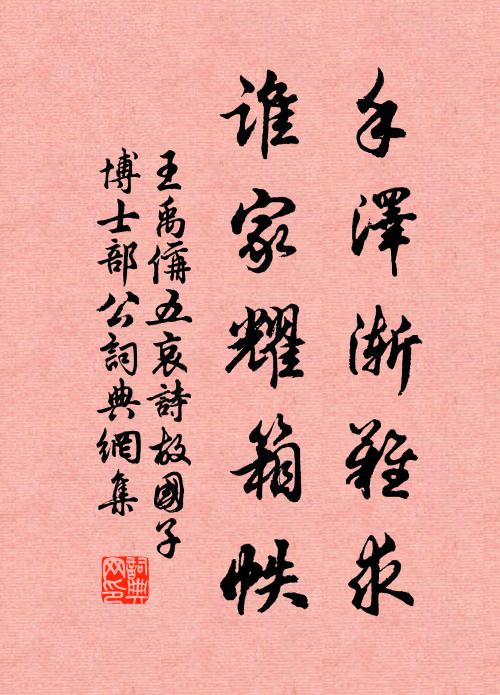 手澤漸難求
誰家耀箱帙
王禹偁五哀詩故國子
博士部公詞典網集
詞典网印